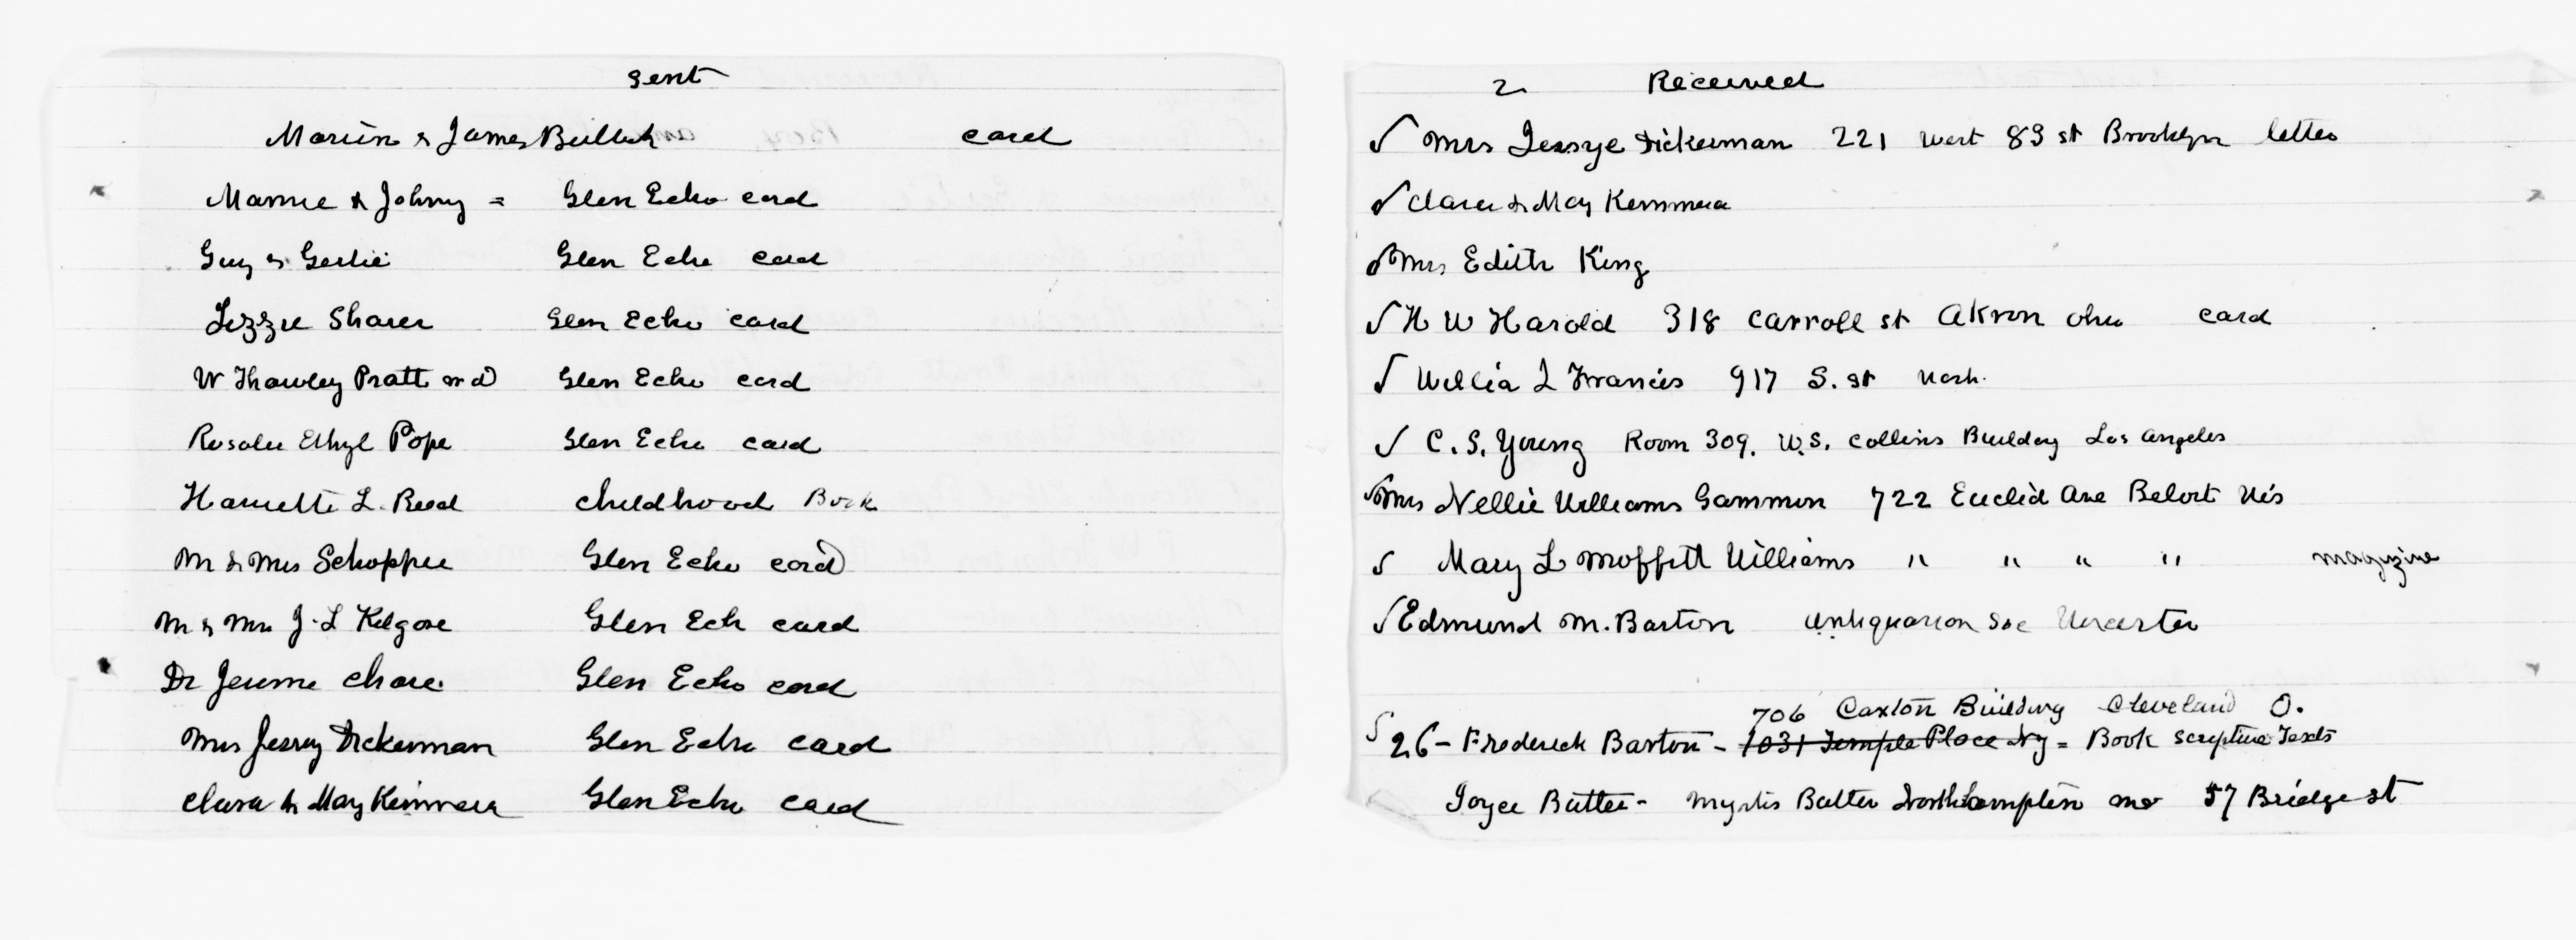 Sent
Marion & James Bullock card
Mamie & Johny = Glen Echo card
Guy & Gertie Glen Echo card
Lizzie Sharer Glen Echo card
W Thawley Pratt md Glen Echo card
Rosalie Ethyl Pope Glen Echo card
Harriette L. Reed childhood Book
Mr & Mrs Schoppee Glen Echo card
Mr & Mrs J. L Kilgore Glen Echo card
Dr Jerome Chace Glen Echo card
Mrs Jessey Dickerman Glen Echo card
Clara & May Kemmerer Glen Echo card
2 Received
√ Mrs Jessye Dickerman 221 West 83 st Brooklyn letter
√ Clara & May Kemmerer
√ Mrs Edith King
√ H W Harold 318 Carroll st Akron Ohio card
√ Willia L Francis 917 S. st Wash.
√ C. S. Young Room 309. W.S. Collins Building Los Angeles
√ Mrs Nellie Williams Gammon 722 Euclid Ave Beloit Wis
√ Mary L Moffett Williams " " " " magazine
√ Edmund M. Barton Antiquarian Soc Worcester
706 Caxton Building Cleveland O.
√ 26 - Frederick Barton - 1031 Temple Place Ny = Book Scripture Texts
Joyce Butler - Myrtis Butler Northampton Ma 57 Bridge st